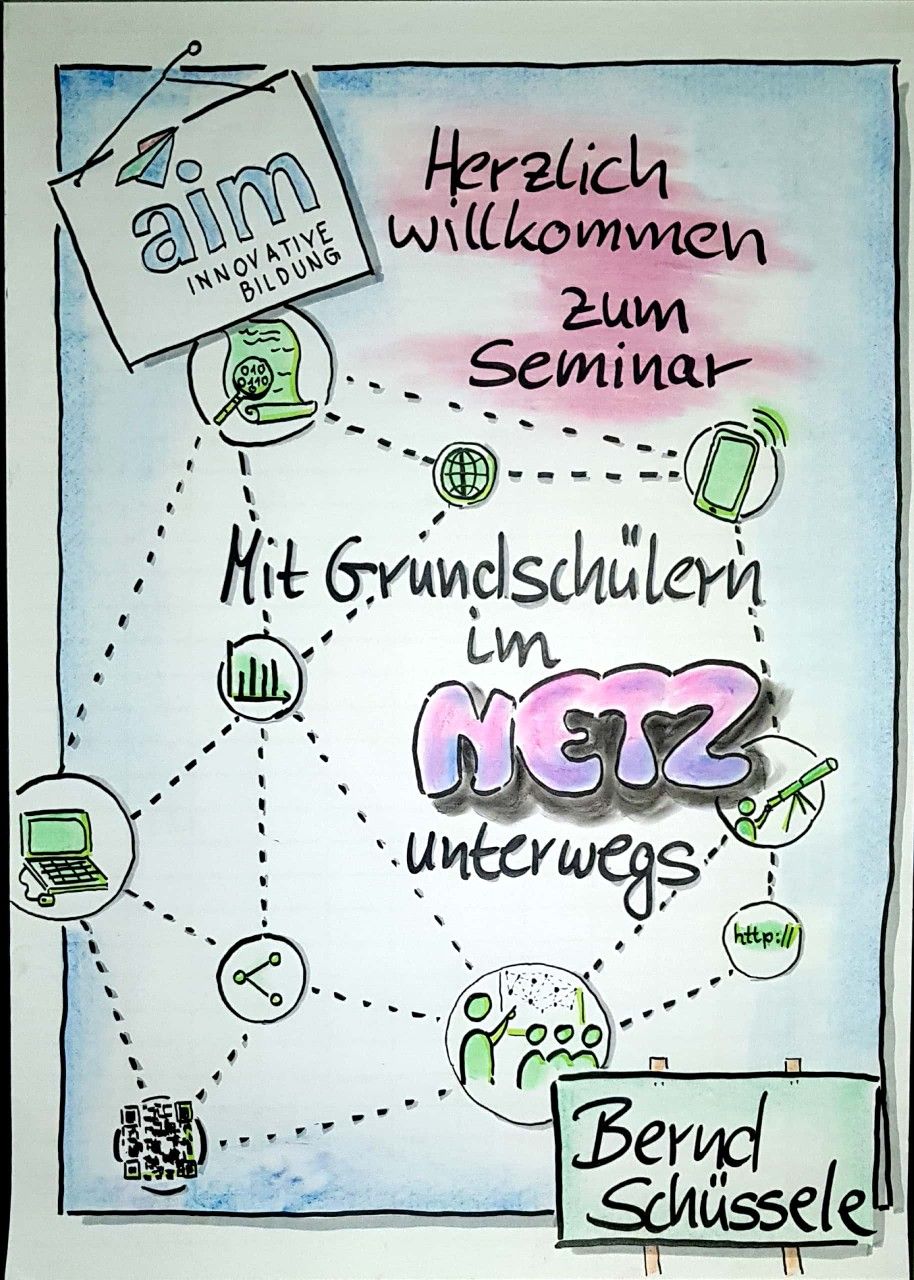 aim
INNOVATIVE
BILDUNG
Herzlich
willkommen
zum
Seminar
010
0110
Mit Grundschülern
im
NETZ
unterwegs
http://
Bernd
Schüssele